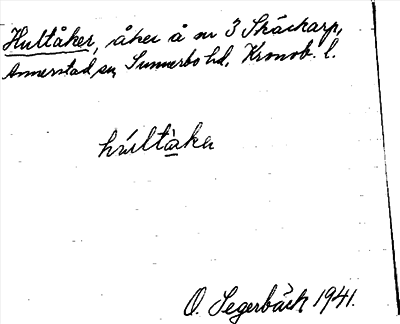 Hultåker, åker å nr 3 Skäckarp,
Annerstad sn, Sunnerbo hd, Kronob. l.
hùltàker
O. Segerbäck 1941.